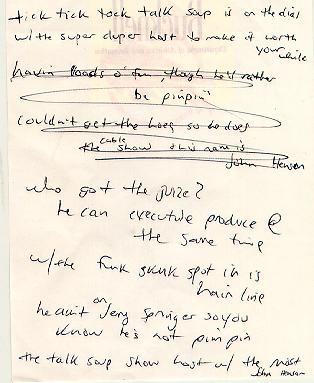 tick tick tock talk soup is on the dial
w/the super duper host to make it worth
your while
havin loads o fun, though he'd rather
be pimpin'
couldn't get the hoes so he does
the cable show his name is
John Henson
who got the juize?
he can executive produce @
the same time
w/the funk skunk spot in is
hair line
he ain't on Jerry Springer so you
know he's not pimpin
the talk soup show host w/ the most
John Henson